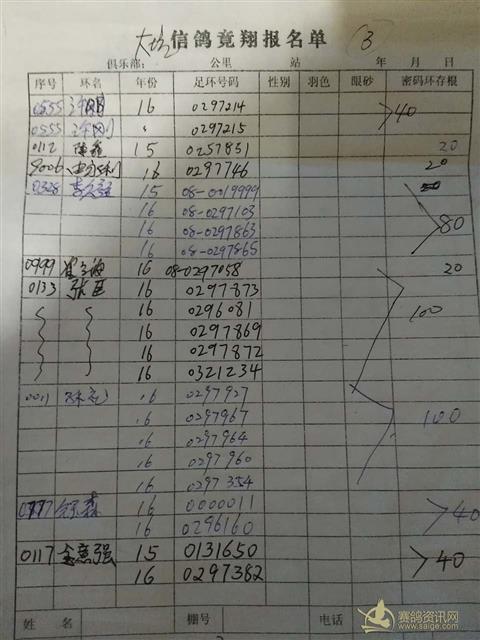 信鸽竞翔报名单 ③
俱乐部: 公里 站 年 月 日
序号 环名 年份 足环号码 性别 羽色 眼砂 密码环存根
0555 16 0297214 >40
0555 〃 0297215
0112 15 0257851 20
8006 16 0297746 20
0328 15 08-0019999
16 08-0297103
16 08-0297863 80
16 08-0297865
0999 16 08-0297058 20
0133 张臣 16 0297873
16 0296081 100
16 0297869
16 0297872
16 0321234
0011 16 0297927
16 0297967 100
16 0297964
16 0297960
16 0297354
0777 16 0000011 >40
16 0296160
0117 金意强 15 0131650 >40
16 0297382
姓名 棚号 电话
赛鸽资讯网
www.saige.com